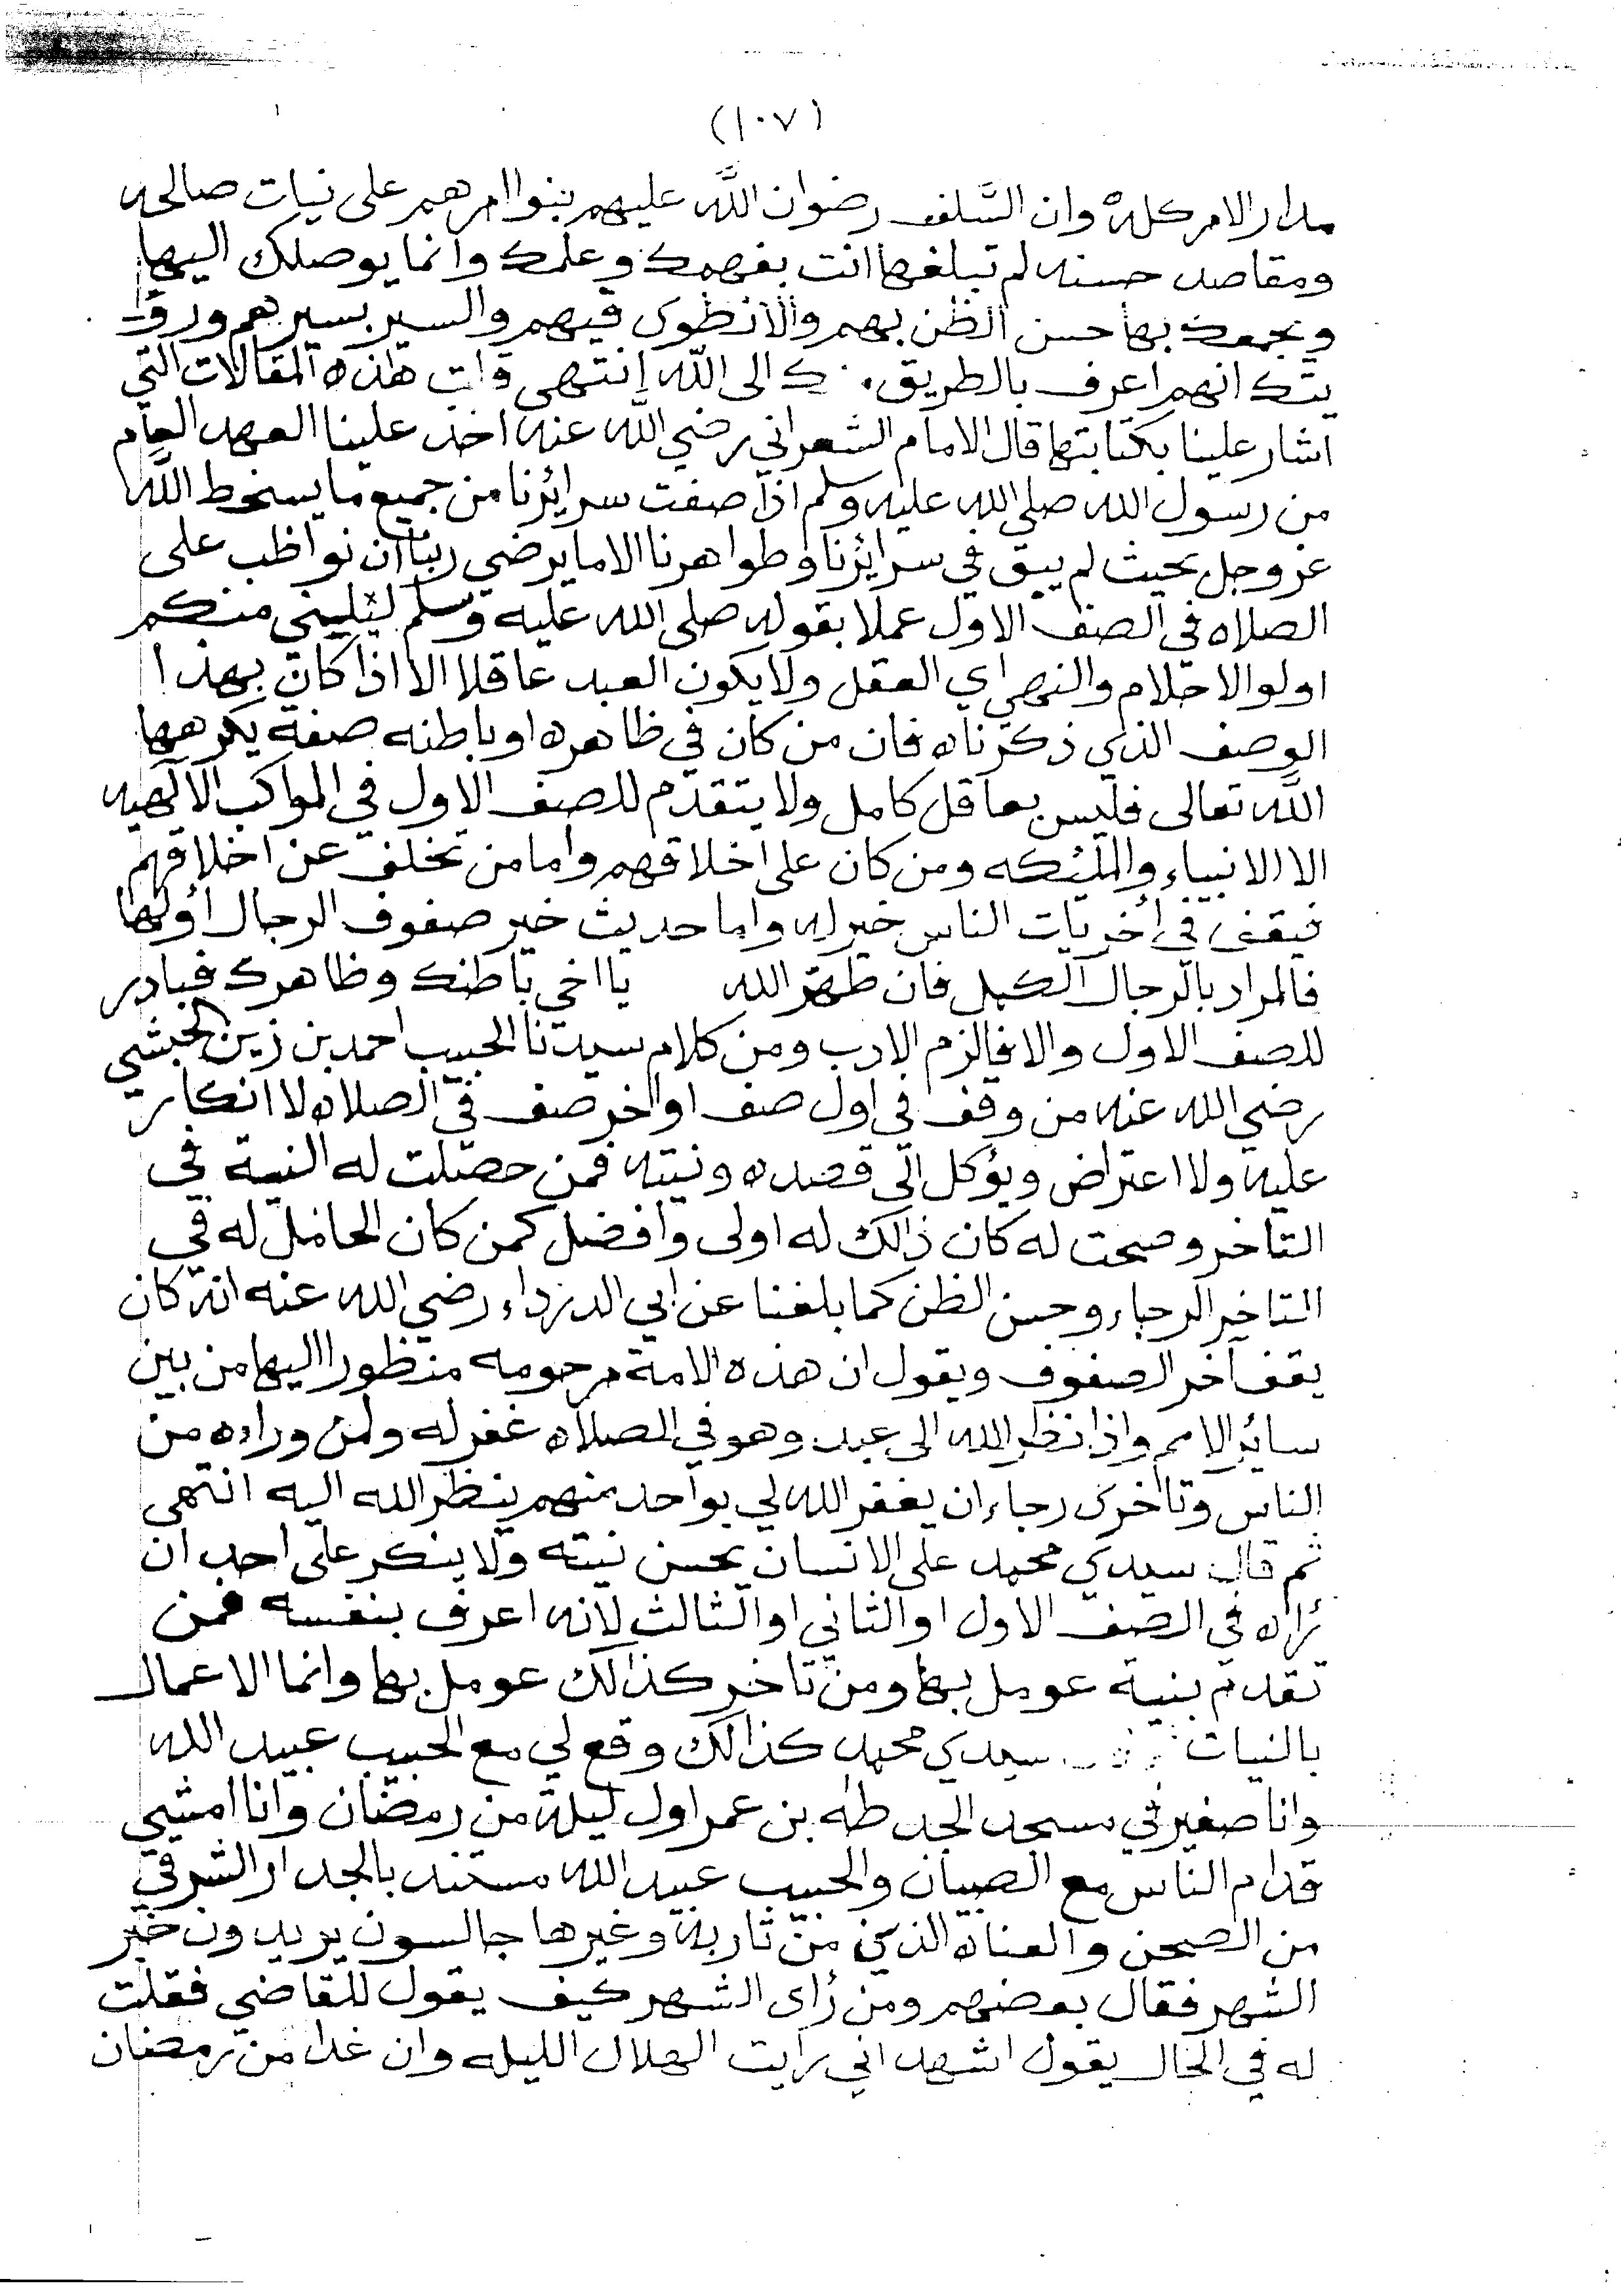 (١٠٧)
مدار الامر كله وان السَّلف رضوان اللَّه عليهم بنوا امرهم على نيات صالحه
ومقاصد حسنه لم تبلغها انت بفهمك وعلمك وانما يوصلك اليها
ويجمعك بها حسن الظن بهم والانطوى فيهم والسير بسيرهم ورؤ
يتك انهم اعرف بالطريق الى اللَّه انتهى وات هذه المقالات التي
اشار علينا بكتابتها قال الامام الشعراني رضي اللَّه عنه اخذ علينا العهد العام
من رسول الله صلي الله عليه وسلم اذا صفت سرائرنا من جميع ما يسخط اللَّه
عز وجل بحيث لم يبق في سرائرنا وظواهرنا الا ما يرضي ربنا ان نواظب على
الصلاه في الصف الاول عملا بقوله صلى الله عليه وسلم ليليني منكم
اولو الاحلام والنهي اي العقل ولا يكون العبد عاقلا الا اذا كان بهذا
الوصف الذي ذكرناه فان من كان في ظاهره او باطنه صفة يكرهها
اللَّه تعالى فليس بعاقل كامل ولا يتقدم للصف الاول في المواكب الالهيه
الا الانبياء والملئكه ومن كان على اخلاقهم واما من تخلف عن اخلاقهم
فيقف في أخريات الناس خير له واما حديث خير صفوف الرجال أولها
فالمراد بالرجال الكمل فان طهر الله يا اخي باطنك وظاهرك فبادر
للصف الاول والا فالزم الادب ومن كلام سيدنا الحبيب احمد بن زين الحبشي
رضي الله عنه من وقف في اول صف او اخر صف في الصلاه لا انكار
عليه ولا اعتراض ويؤكل الى قصده ونيته فمن حصلت له النية في
التاخر وصحت له كان ذالك له اولى وافضل كمن كان الحامل له في
التاخير الرجاء وحسن الظن كما بلغنا عن ابي الدرداء رضي الله عنه انه كان
يقف آخر الصفوف ويقول ان هذه الامة مرحومه منظورا اليها من بين
سائر الامم واذا نظر الله الى عبد وهو في الصلاه غفر له ولمن وراءه من
الناس وتأخرى رجاء ان يغفر الله لي بواحد منهم ينظر الله اليه انتهى
ثم قال سيدي محمد على الانسان يحسن نيته ولا ينكر على احد ان
رأه في الصف الاول او الثاني او الثالث لانه اعرف بنفسه فمن
تقدم بنية عومل بها ومن تاخر كذالك عومل بها وانما الاعمال
بالنيات سيدي محمد كذالك وقع لي مع الحبيب عبيد الله
وانا صغير في مسجد الجد طه بن عمر اول ليلة من رمضان وانا امشي
قدام الناس مع الصبيان والحبيب عبيد الله مستند بالجدار الشرقي
من الصحن والعناه الذي من ثاربه وغيرها جالسون يريدون خبر
الشهر فقال بعضهم ومن رأى الشهر كيف يقول للقاضي فقلت
له في الحال يقول اشهد اني رايت الهلال الليله وان غدا من رمضان